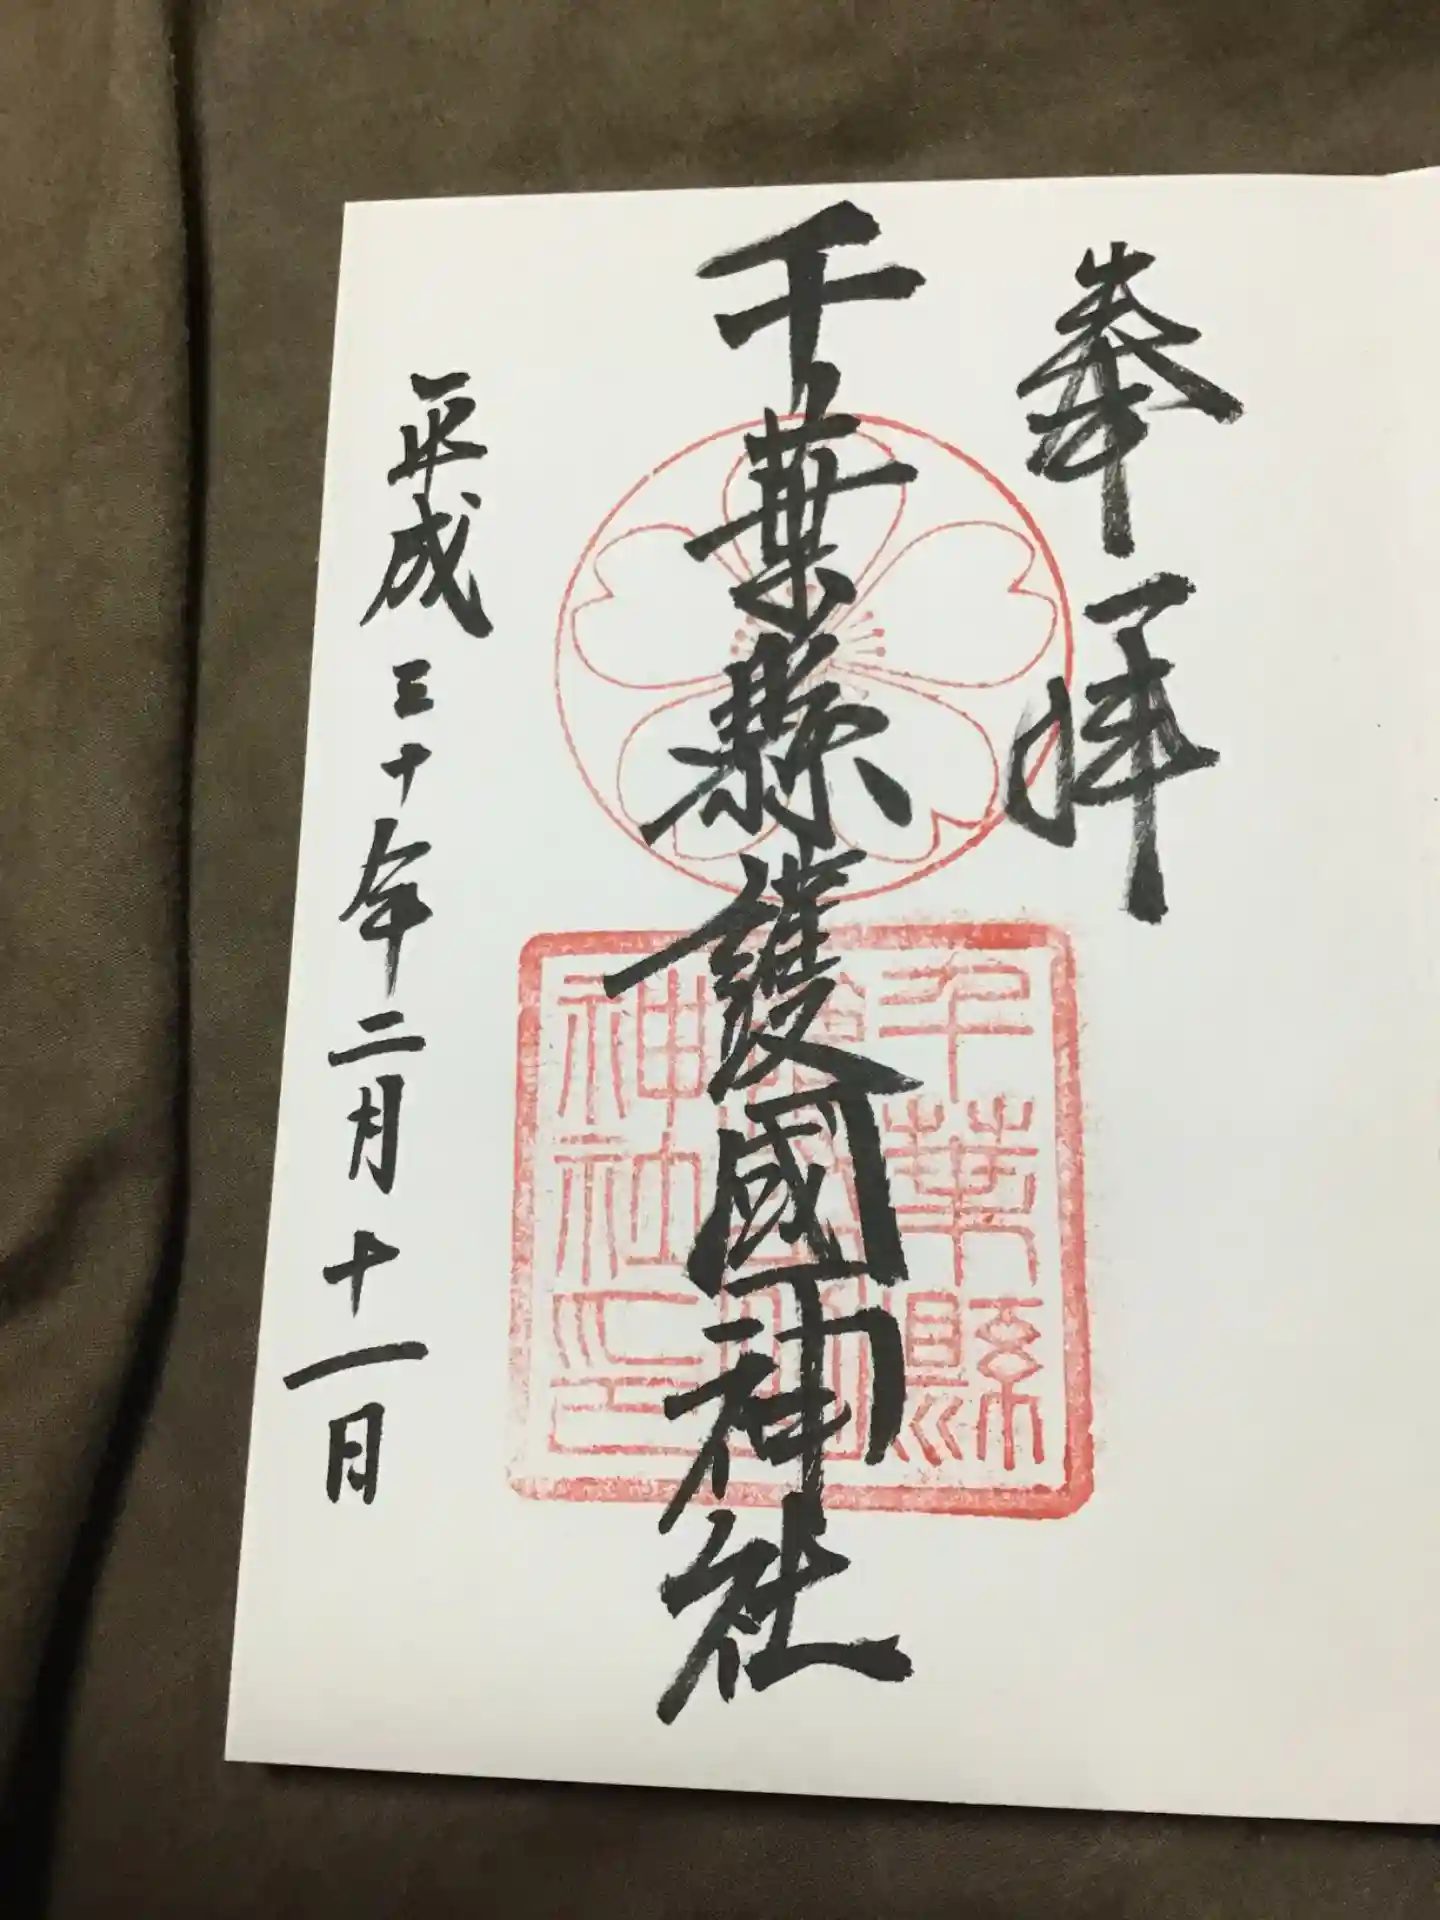 奉拝
千葉縣護國神社
千葉縣
護國神社印
平成三十年二月十一日